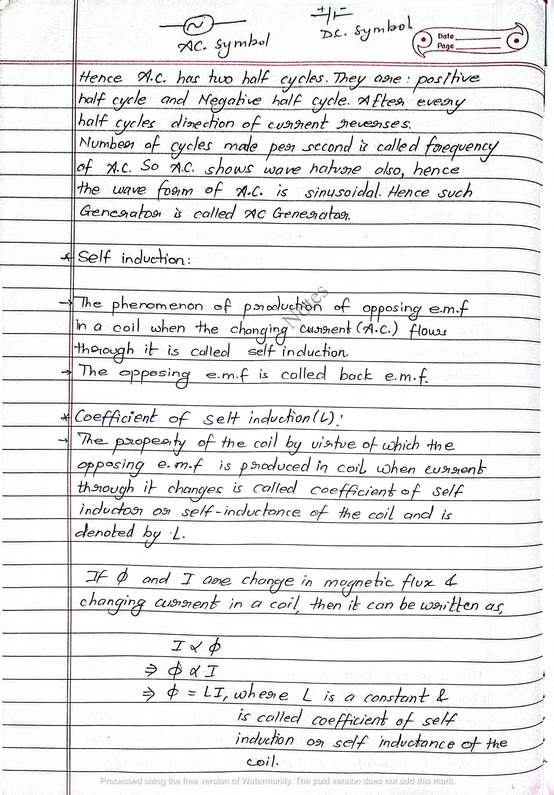 A.C. Symbol
+ -
D.C. Symbol
Date
Page
Hence A.C. has two half cycles. They are: positive
half cycle and Negative half cycle. After every
half cycles direction of current reverses.
Number of cycles made per second is called frequency
of A.C. So A.C. shows wave nature also, hence
the wave form of A.C. is sinusoidal. Hence such
Generator is called AC Generator.
* Self induction:
→ The phenomenon of production of opposing e.m.f
in a coil when the changing current (A.C.) flows
through it is called self induction.
→ The opposing e.m.f is called back e.m.f.
Notes
* Coefficient of self induction (L):
→ The property of the coil by virtue of which the
opposing e.m.f is produced in coil when current
through it changes is called coefficient of self
inductor or self-inductance of the coil and is
denoted by L.
If ϕ and I are change in magnetic flux &
changing current in a coil, then it can be written as,
I ∝ ϕ
⇒ ϕ ∝ I
⇒ ϕ = LI, where L is a constant &
is called coefficient of self
induction or self inductance of the
coil.
Processed using the free version of Watermarkly. The paid version does not add this mark.